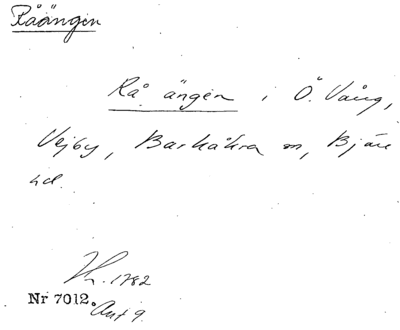 Råängen
Rå ängen i Ö. Vång,
Vejby, Barkåkra sn, Bjäre
hd.
1782
Nr 7012. Akt 9.